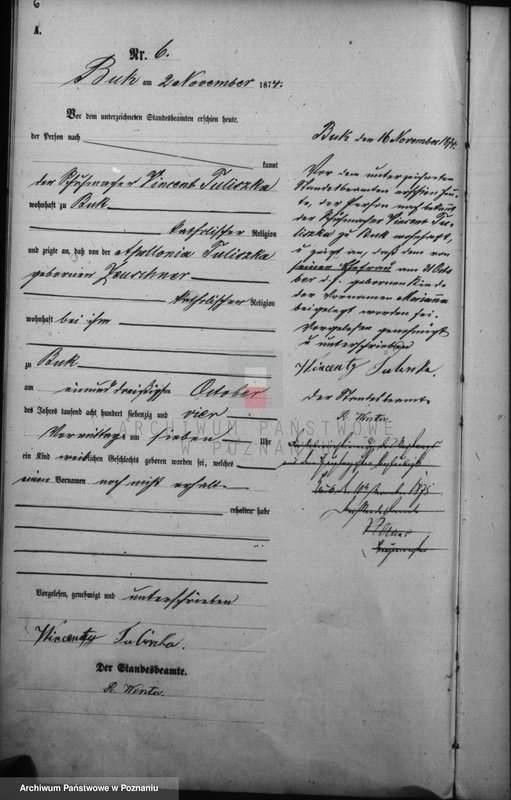 6
A.
Nr. 6.
Buk am 2 November 1874.
Vor dem unterzeichneten Standesbeamten erschien heute,
der Person nach
kannt
der Schuhmacher Vincent Tuliszka
wohnhaft zu Buk
katholischer Religion
und zeigte an, daß von der Apollonia Tuliszka
geborenen Zeuschner
katholischer Religion
wohnhaft bei ihm
zu Buk
am einunddreißigsten October
des Jahres tausend acht hundert siebenzig und vier
Vormittags um sieben Uhr
ein Kind weiblichen Geschlechts geboren worden sei, welches
einen Vornamen noch nicht erhalten
erhalten habe
Vorgelesen, genehmigt und unterschrieben
Wincenty
Der Standesbeamte.
R. Winter.
Buk den 16 November 1874.
Vor dem unterzeichneten
Standesbeamten erschien heu-
te, der Person nach bekannt
der Schuhmacher Vincent Tu-
liszka zu Buk wohnhaft,
u. zeigt an, daß dem von
seiner Ehefrau am 31 Octo
ber d. J. geborenen Kinde
der Vornamen Marianna
beigelegt worden sei.
Vorgelesen genehmigt
u unterschrieben
Wincenty
Der Standesbeamte
R. Winter
1875
ARCHIWUM PAŃSTWOWE
W POZNANIU
Archiwum Państwowe w Poznaniu